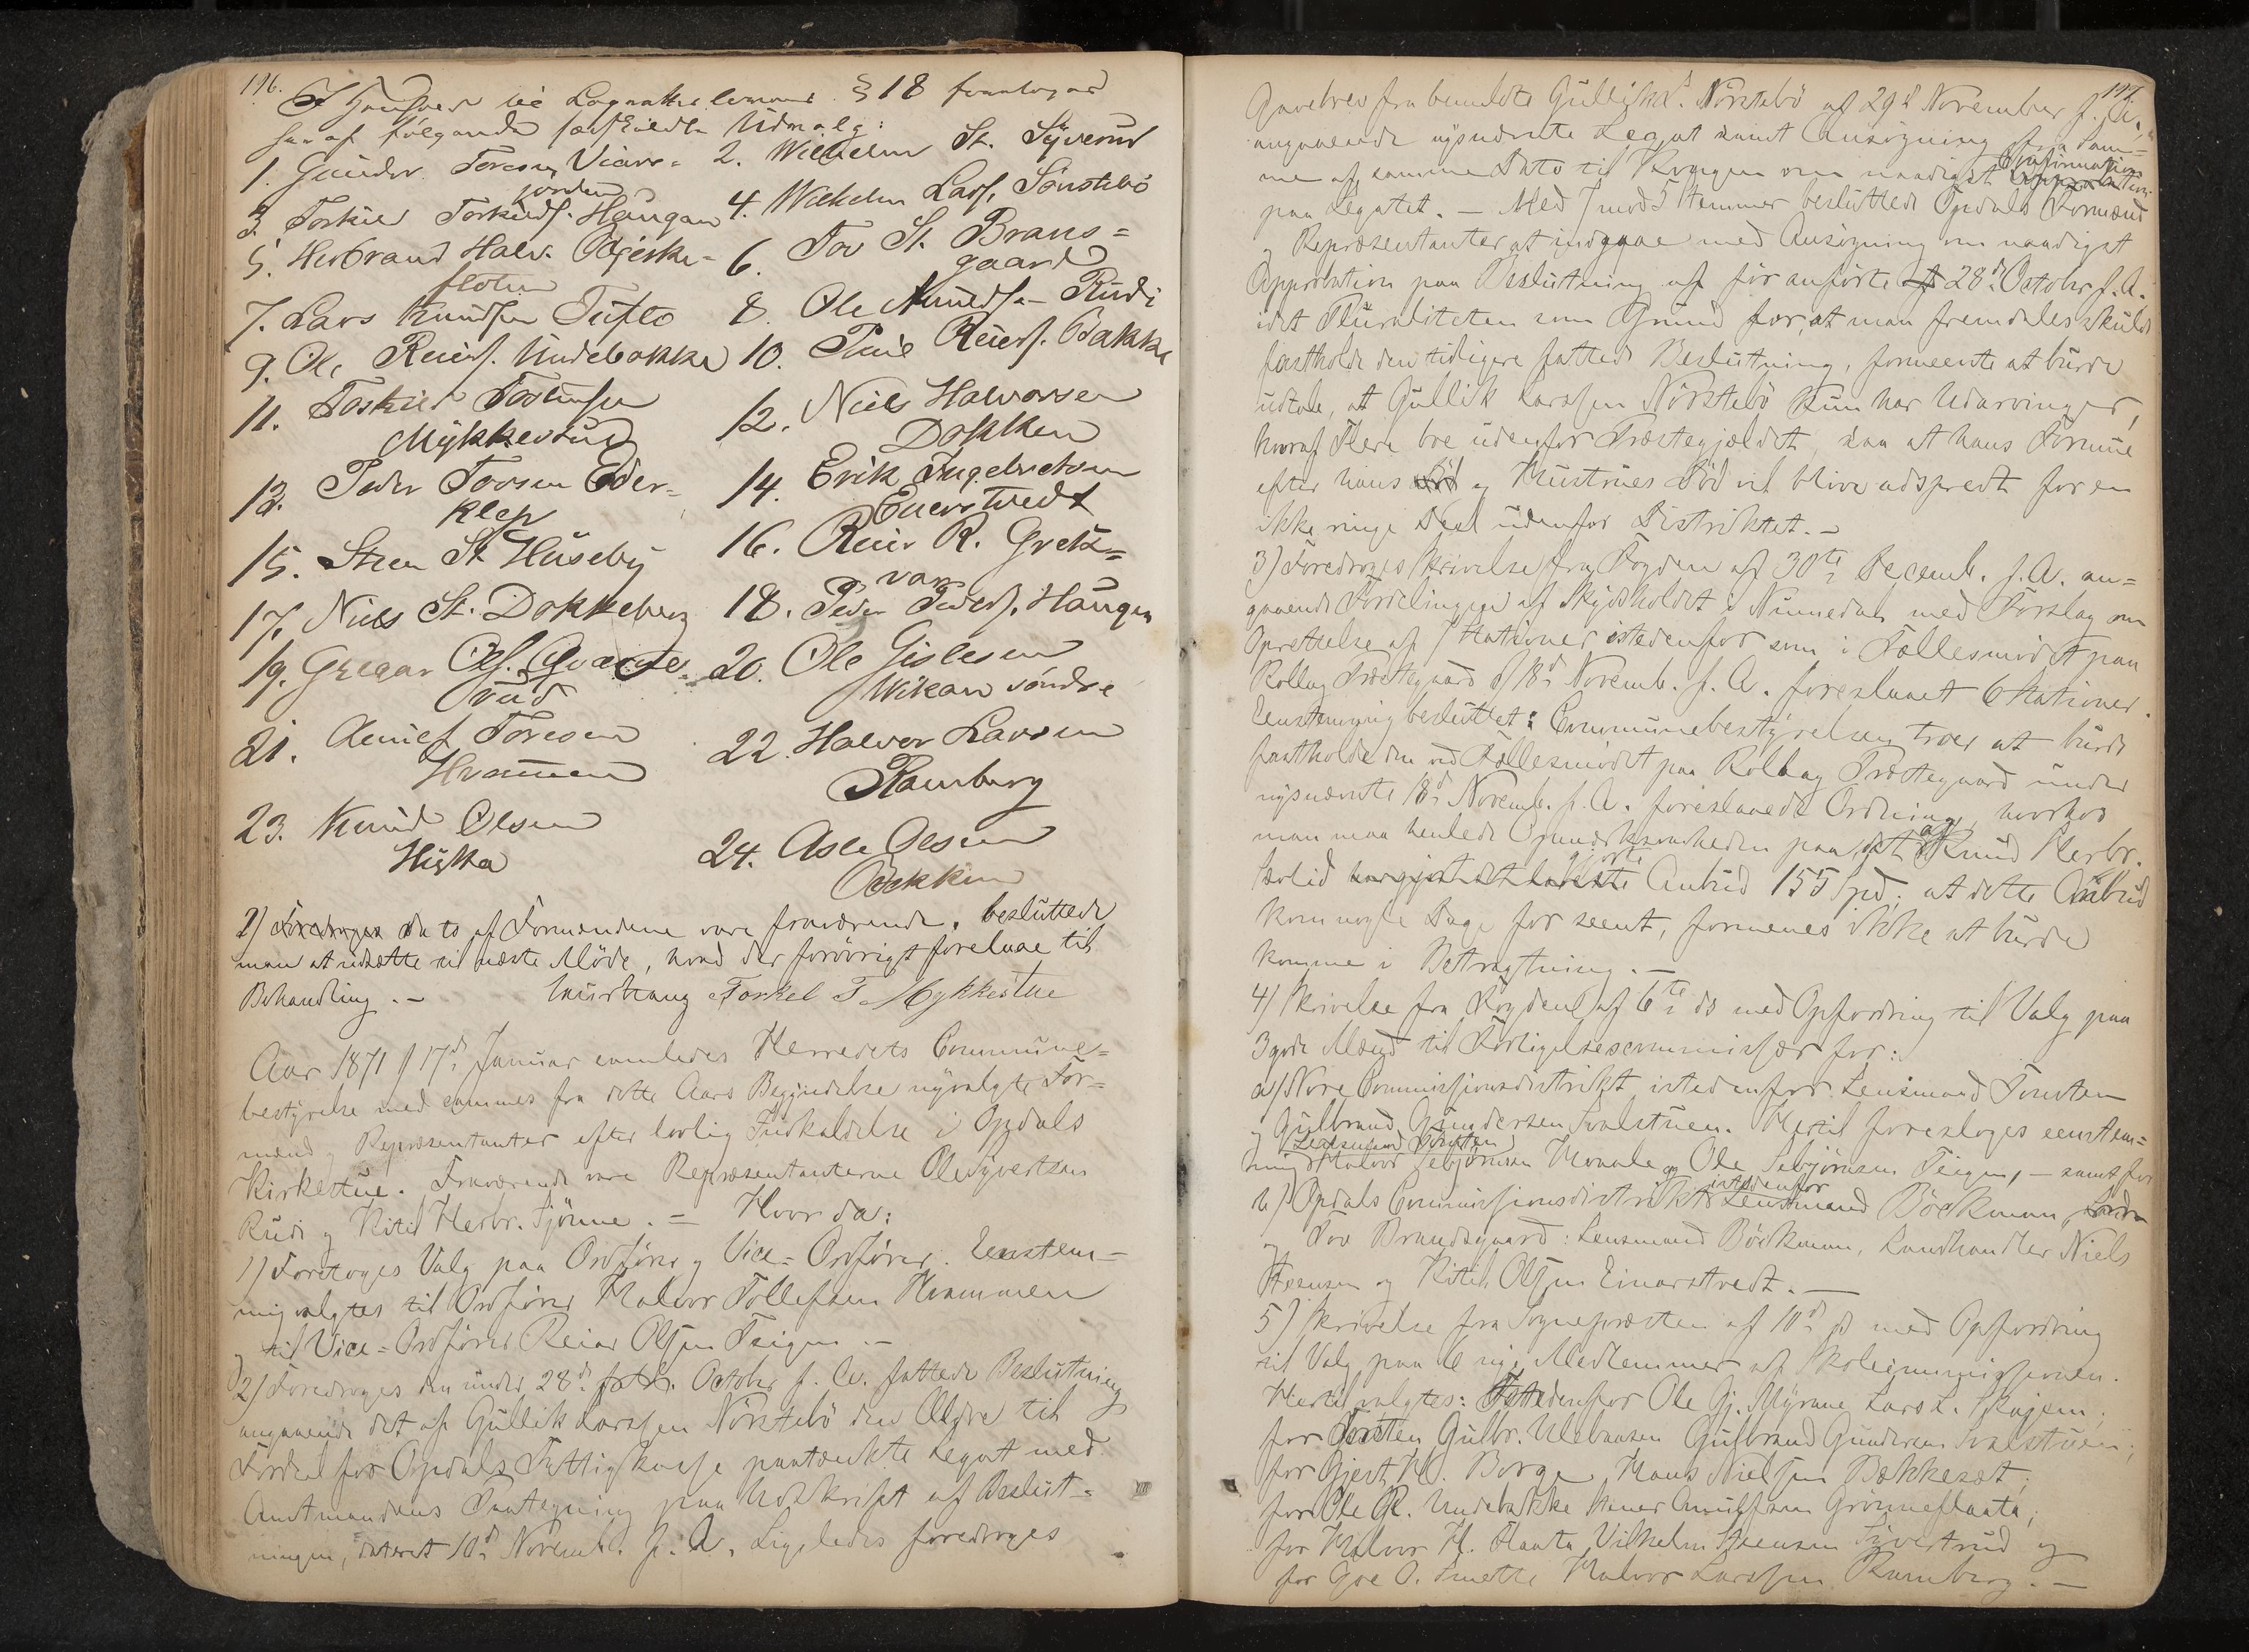 116.
I Henhold til Lagrettelovens § 18 foretoges
saa følgende særskildte Udvalg:
1. Gunder Toresen Viar=
jorden
2. Wilhelm St. Syverud
3. Torkild Torkilds. Haugan
4. Wilhelm Lars. Sønstebö
5. Herbrand Halv. Bjerke=
floten
6. Tov St. Brans=
gaard
7. Lars Knudsen Tufto
8. Ole Knuds. Rudi
9. Ole Reiers. Undebakke
10. Paul Reiers. Bakke
11. Torkild Torkildsen
Mykkestue
12. Niels Halvorsen
Dokken
13. Peder Tovsen Eder=
klep
14. Erik Ingebretsen
Enerstvedt
15. Steen St. Huseby
16. Reier R. Grets=
van
17. Niels St. Dokkeberg
18. Peder Peders. Haugen
19. Gregar Ols. Qvarte=
rud
20. Ole Gislesen
Wikan söndre
21. Toresen
Hvammen
22. Halvor Larsen
Ramberg
23. Knud Olsen
Hykka
24. Asle Olsen
Bekken
2) Foredroges da to af Formændene vare fraværende, besluttede
man at udsætte til næste Møde, hvad der forøvrigt forelaae til
Behandling. — Torkel T Mykkestue
Aar 1871 d 17de Januar samledes Herredets Commune=
bestyrelse med sammes fra dette Aars Begyndelse nyvalgte For=
mænd og Repræsentanter efter lovlig Indkaldelse i Opdals
Kirkestue. Fraværende vare Repræsentanterne Ole Syvertsen
Rudi og Kitil Herbr. Sjönne. = Hvor da:
1) Foretoges Valg paa Ordfører og Vice=Ordfører. Eenstem=
mig valgtes til Ordfører Halvor Tollefsen Hvammen
og til Vice=Ordfører Reiar Olsen Teigen. —
2) Foredroges den under 28de Octobr f. A. fattede Beslutning
angaaende det af Gullik Larssen Nörstebö den Ældre til
Fordel for Opdals Fattigkasse paatænkte Legat med
Amtmandens Paategning paa Udskrift af Beslut=
ningen, dateret 10de Novemb. f. A. Ligeledes foredroges
117.
Gavebrev fra bemeldte Gullik L. Nörstebö af 29de November f. A.,
angaaende nysnævnte Legat samt Ansøgning fra Sam=
me af samme Dato til Kongen om naadigst Confirmation
paa Legatet. — Med 7 mod 5 Stemmer besluttede Opdals Formænd
og Repræsentanter at indgaae med Ansøgning om naadigst
Approbation paa Beslutning af før anførte 28de Octobr f. A.
idet Pluraliteten som Grund for, at man fremdeles skulde
fastholde den tidligere fattede Beslutning, formeente at burde
udtale, at Gullik Larssen Nörstebö kun har Udarvinger,
hvoraf Flere boe udenfor Præstegjældet, saa at hans Formue
efter hans og Hustrues Død vil blive adspredt for en
ikke ringe Deel udenfor Distriktet. —
3) Foredroges Skrivelse fra Fogden af 30te Decemb. f. A. an=
gaaende Fordelingen af Skydsholdet i Numedal med Forslag om
Oprettelse af 7 Stationer istedenfor som i Fællesmødet paa
Rollag Præstegaard d 18de Novemb. f. A. foreslaaet 6 Stationer.
Eenstemmig besluttet: Communebestyrelsen troer at burde
fastholde den ved Fællesmødet paa Rollag Præstegaard under
nysnævnte 18de Novemb. f. A. foreslaaede Ordning, hvorhos
man maa henlede Opmærksomheden paa det af Knud Herbr.
Sælid gjorte Anbud 155 Spd; at dette Anbud
kom nogle Dage for seent, formenes ikke at burde
komme i Betragtning. —
4) Skrivelse fra Fogden af 6te ds med Opfordring til Valg paa
3 gode Mænd til Forligelsescommissær for:
a) Nore Commissionsdistrikt istedenfor Lensmand Tovsten
og Gulbrand Gundersen Svalstuen. Hertil foresloges eenstem=
mig Lensmand Tovsten Halvor Sebjörnsen Hvaale og Ole Sebjörnsen Teigen, — samt for
b) Opdals Commissionsdistrikt istedenfor Lensmand Böckman,
og Tov Brandsgaard: Lensmand Böckman, Landhandler Niels
Steensen og Kitil Olsen Einarstvedt. —
5) Skrivelse fra Sognepræsten af 10de ds med Opfordring
til Valg paa 6 nye Medlemmer af Skolecommissionen.
Hertil valgtes: Istedenfor Ole Gj. Myrane Lars L. Skajem;
for Torsten Gulbr. Ulebaasen Gulbrand Gundersen Svalstuen;
for Gjert H. Borge Hans Nielsen Bækkesæt;
for Ole R. Undebakke Grönneflaata;
for Halvor H. Flaata Vilhelm Steensen Syvertrud og
for Goe O. Smette Halvor Larssen Ramberg. —